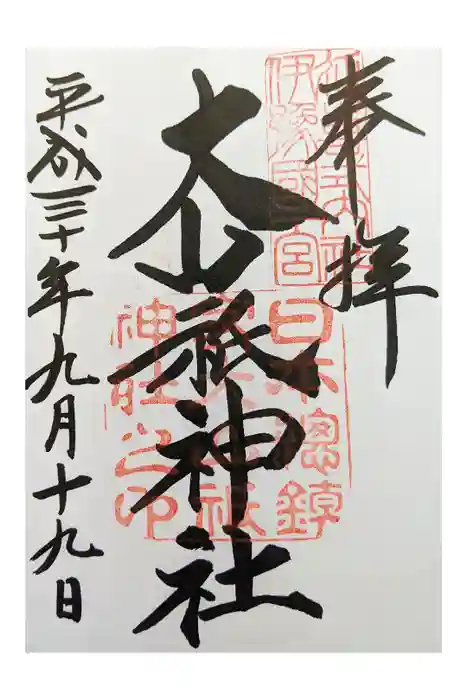 奉拝
大山祇神社
平成三十年九月十九日
伊豫國一宮
日本總鎮
神社之印